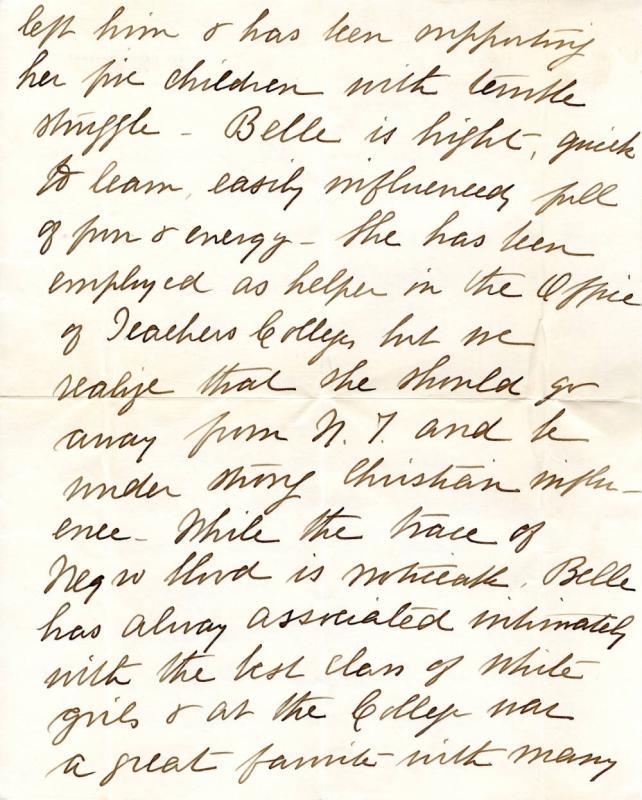 left him & has been supporting
her five children with terrible
struggle - Belle is bright, quick
to learn, easily influenced, full
of fun & energy - She has been
employed as helper in the Office
of Teachers College, but we
realize that she should go
away from N. Y. and be
under strong Christian influ-
ence - While the trace of
Negro blood is noticeable, Belle
has alway associated intimately
with the best class of white
girls & at the College was
a great favorite with many